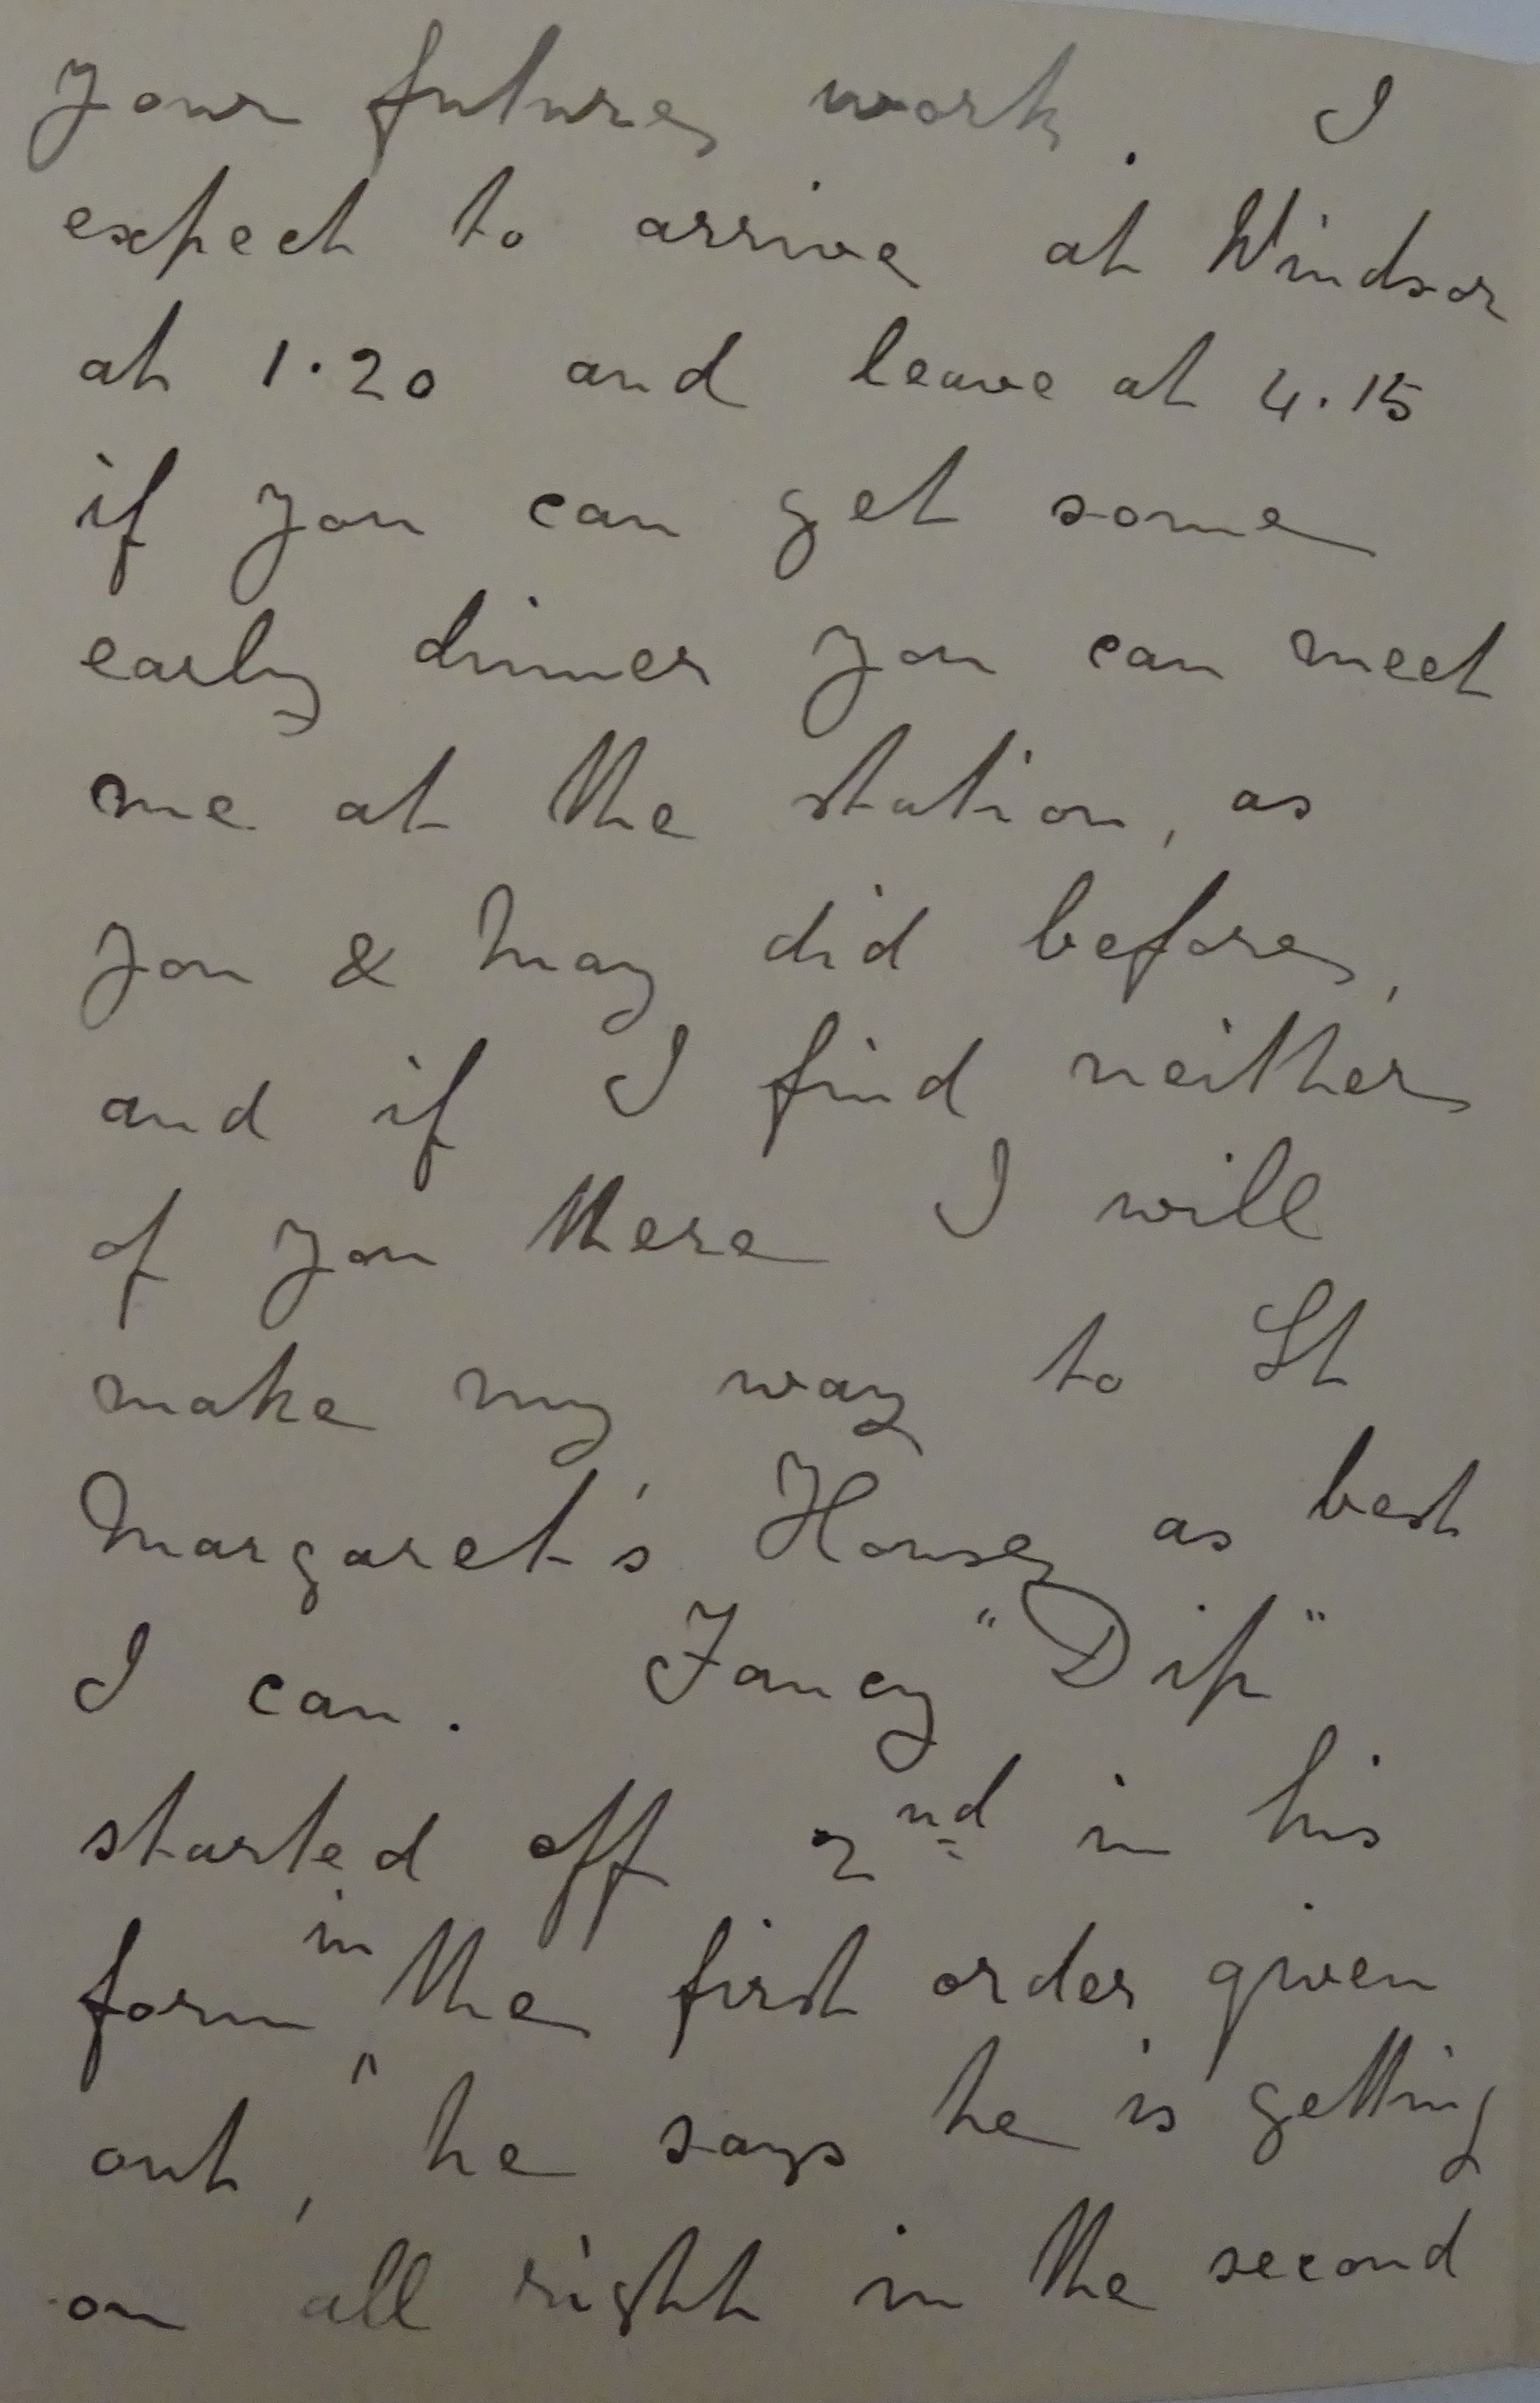 your future work. I
expect to arrive at Windsor
at 1.20 and leave at 4.15
if you can get some
early dinner you can meet
me at the station, as
you & May did before,
and if I find neither
of you there I will
make my way to St
Margaret's House as best
I can. Fancy "Dip"
started off 2nd in his
form in the first order given
out, he says he is getting
on all right in the second